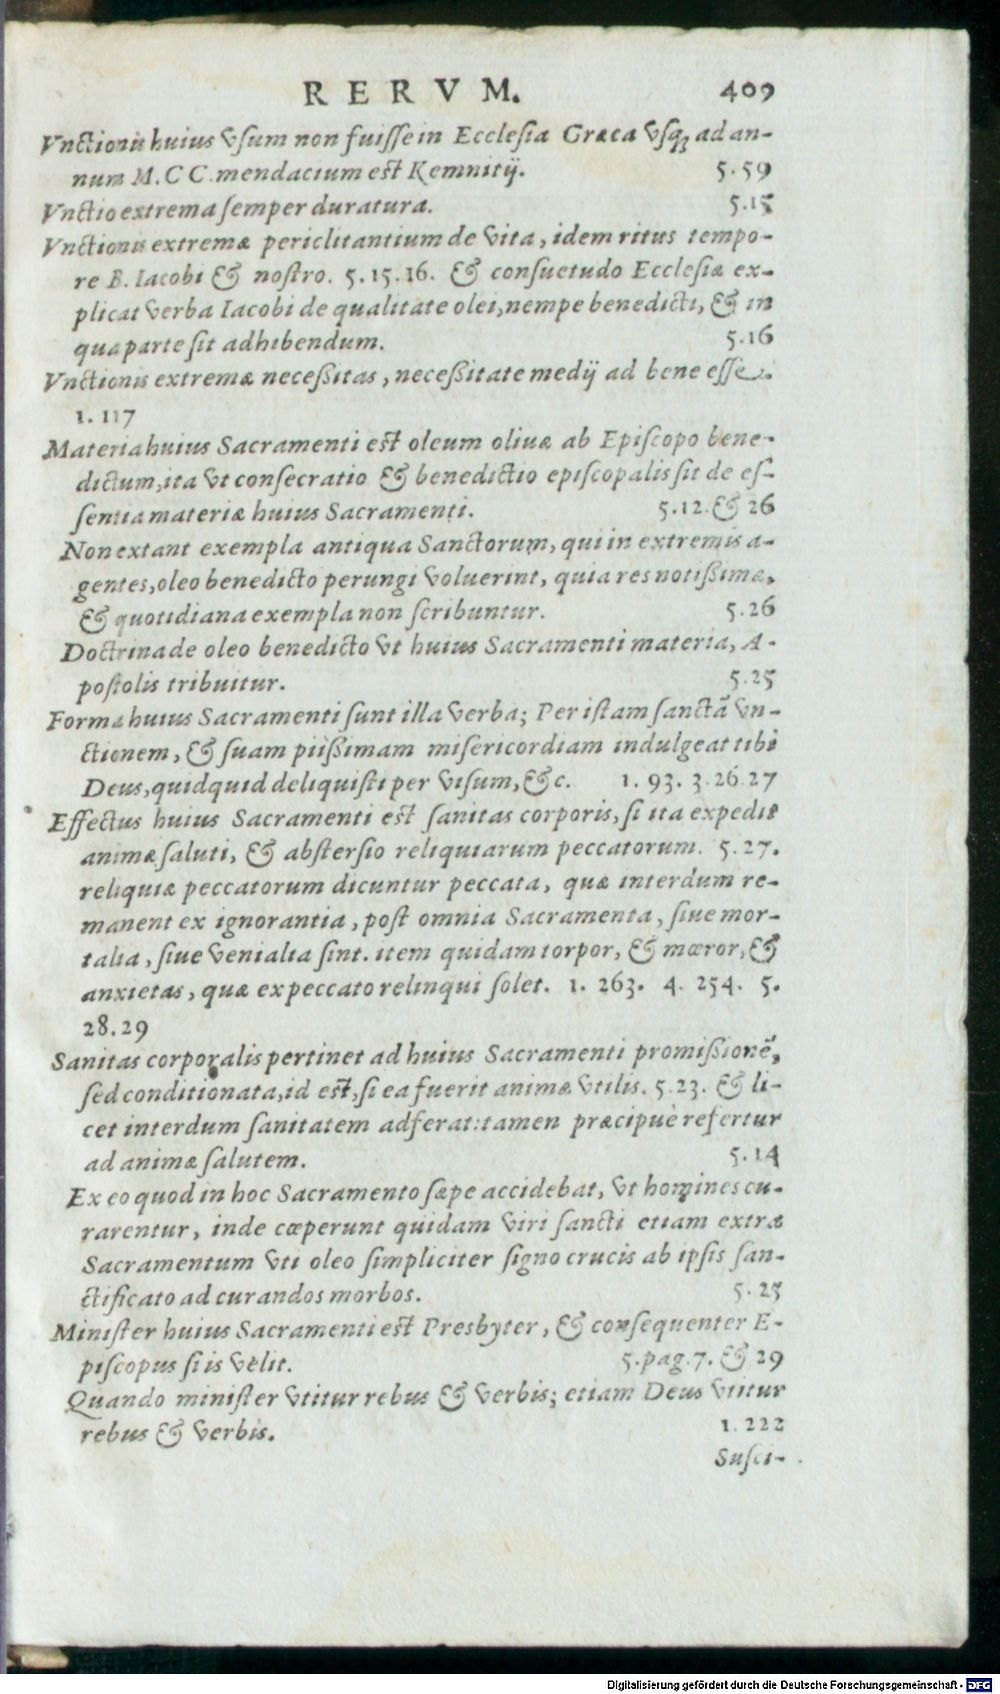 RERVM. 409
Vnctionis huius vsum non fuisse in Ecclesia Græca vsq; ad an-
num M.CC. mendacium est Kemnitij. 5.59
Vnctio extrema semper duratura. 5.15
Vnctionis extremæ periclitantium de vita, idem ritus tempo-
re B. Iacobi & nostro. 5.15.16. & consuetudo Ecclesiæ ex-
plicat verba Iacobi de qualitate olei, nempe benedicti, & in
qua parte sit adhibendum. 5.16
Vnctionis extremæ neceßitas, neceßitate medij ad bene esse.
1.117
Materia huius Sacramenti est oleum oliuæ ab Episcopo bene-
dictum, ita vt consecratio & benedictio episcopalis sit de es-
sentia materiæ huius Sacramenti. 5.12. & 26
Non extant exempla antiqua Sanctorum, qui in extremis a-
gentes, oleo benedicto perungi voluerint, quia res notißimæ,
& quotidiana exempla non scribuntur. 5.26
Doctrina de oleo benedicto vt huius Sacramenti materia, A-
postolis tribuitur. 5.25
Forma huius Sacramenti sunt illa verba; Per istam sanctã vn-
ctionem, & suam piißimam misericordiam indulgeat tibi
Deus, quidquid deliquisti per visum, &c. 1.93. 3.26.27
Effectus huius Sacramenti est sanitas corporis, si ita expedit
animæ saluti, & abstersio reliquiarum peccatorum. 5.27.
reliquiæ peccatorum dicuntur peccata, quæ interdum re-
manent ex ignorantia, post omnia Sacramenta, siue mor-
talia, siue venialia sint. item quidam torpor, & mœror, &
anxietas, quæ ex peccato relinqui solet. 1. 263. 4. 254. 5.
28.29
Sanitas corporalis pertinet ad huius Sacramenti promißionẽ,
sed conditionata, id est, si ea fuerit animæ vtilis. 5.23. & li-
cet interdum sanitatem adferat: tamen præcipuè refertur
ad animæ salutem. 5.14
Ex eo quod in hoc Sacramento sæpe accidebat, vt homines cu-
rarentur, inde cœperunt quidam viri sancti etiam extra
Sacramentum vti oleo simpliciter signo crucis ab ipsis san-
ctificato ad curandos morbos. 5.25
Minister huius Sacramenti est Presbyter, & consequenter E-
piscopus si is velit. 5.pag.7. & 29
Quando minister vtitur rebus & verbis; etiam Deus vtitur
rebus & verbis. 1.222
Susci-
Digitalisierung gefördert durch die Deutsche Forschungsgemeinschaft - DFG